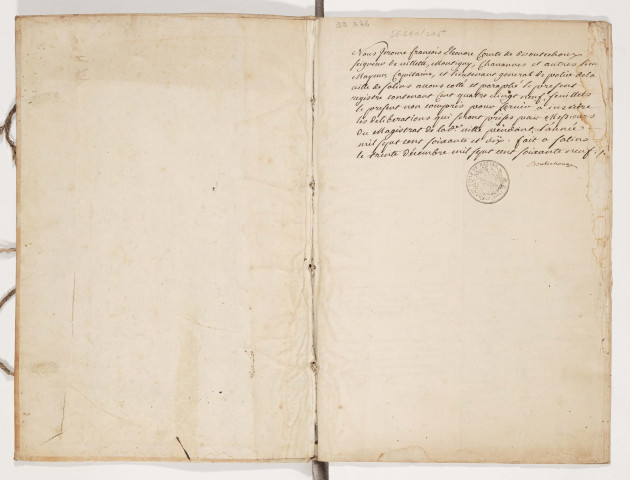 Nous Jerome François Eleonore Comte de Boutechoux
seigneur de villette, Montigny, Chavannes et autres lieux
Mayeur Capitaine, et lieutenant general de police de la
ville de salins avons cotté et paraphé le present
registre contenant cent quatre vingt neuf feuillets
le present non compris pour servir a inscrire
les deliberations qui seront prises par Messieurs
du Magistrat de lad.e ville pendant l'année
mil sept cent soixante et dix. fait a salins
le trente decembre mil sept cent soixante neuf ./.
Boutechoux